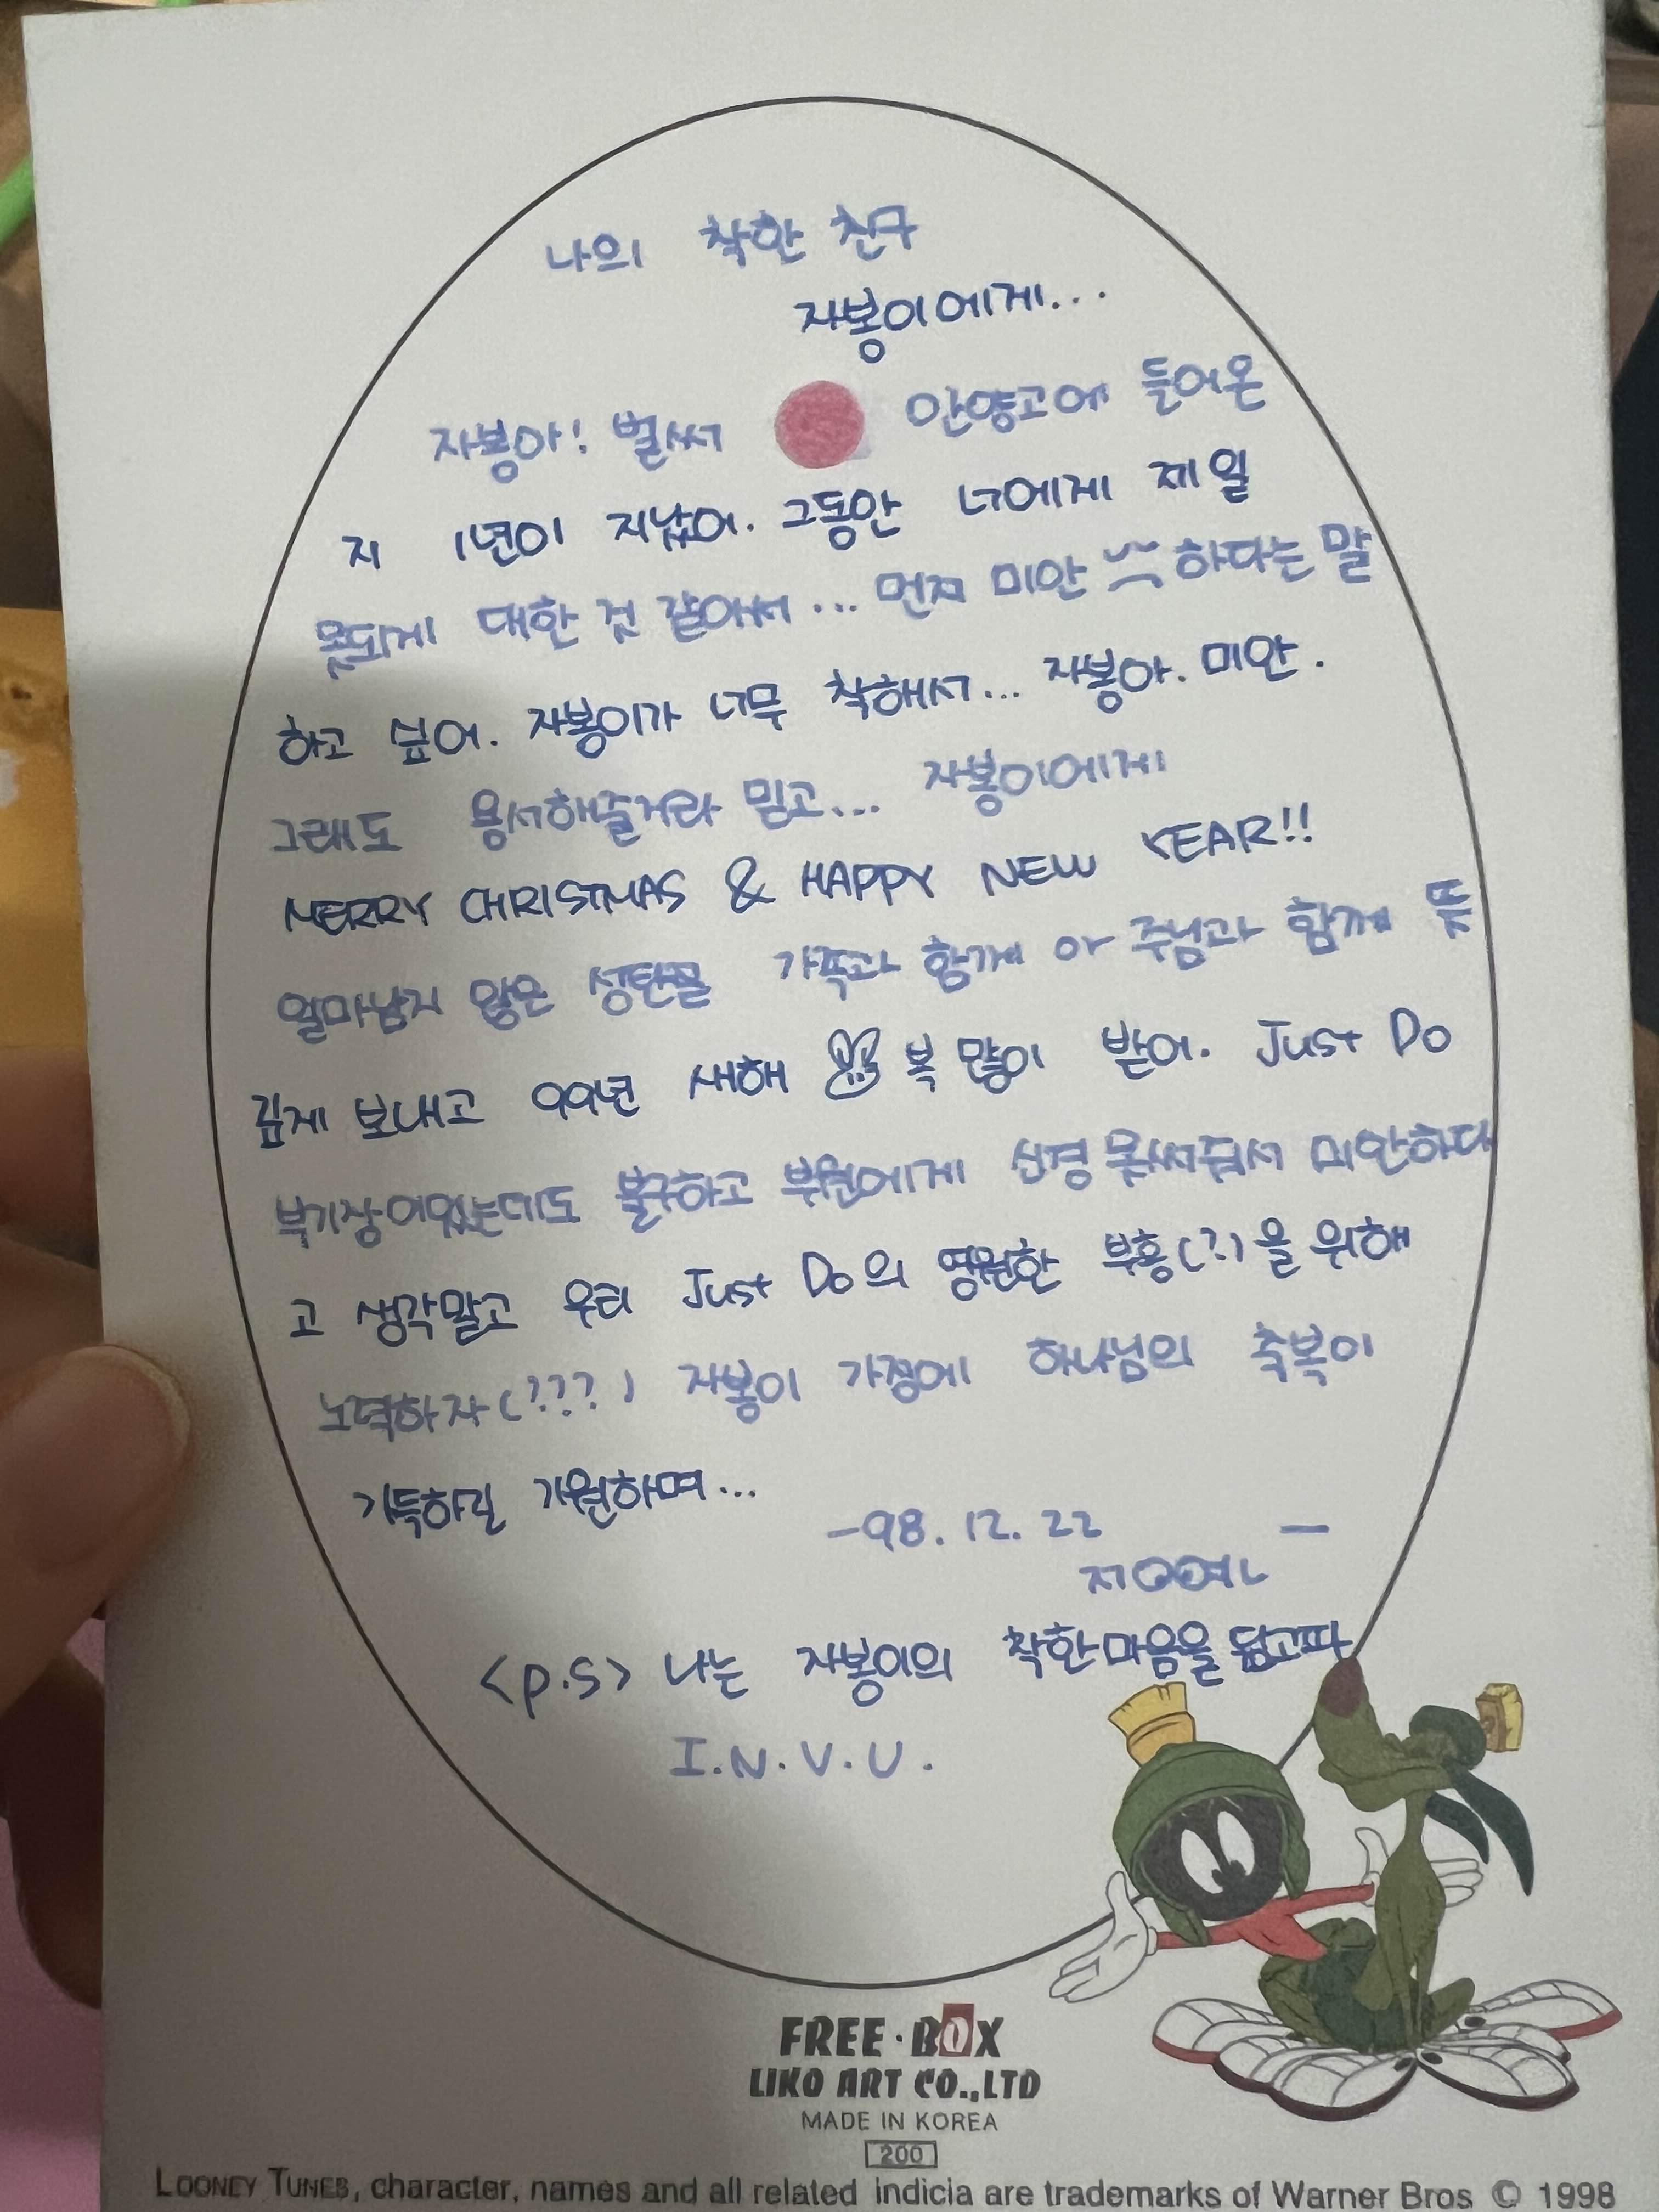 나의 착한 친구
자봉이에게...
자봉아! 벌써 안양고에 들어온
지 1년이 지났어. 그동안 너에게 제일
못되게 대한 것 같아서... 먼저 미안 하다는 말
하고 싶어. 자봉이가 너무 착해서... 자봉아. 미안.
그래도 용서해줄거라 믿고... 자봉이에게
MERRY CHRISTMAS & HAPPY NEW YEAR!!
얼마남지 않은 성탄절 가족과 함께 아 주님과 함께 뜻
깊게 보내고 99년 새해 복 많이 받어. Just Do
부기장이었는데도 불구하고 부원에게 신경 못써줘서 미안하다
고 생각말고 우리 Just Do의 영원한 부흥(?)을 위해
노력하자(???) 자봉이 가정에 하나님의 축복이
가득하길 기원하며...
-98. 12. 22 -
<p.s> 나는 자봉이의 착한마음을 닮고파
I.N.V.U.
FREE·BOX
LIKO ART CO.,LTD
MADE IN KOREA
200
LOONEY TUNES, character, names and all related indicia are trademarks of Warner Bros © 1998